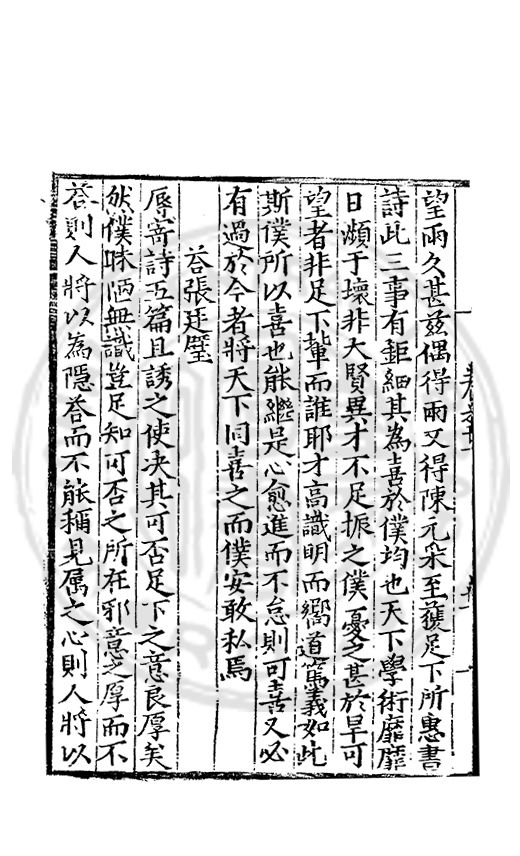 望雨久甚茲偶得雨又得陳元采至獲足下所惠書
詩此三事有鉅細其為喜於僕均也天下學術靡靡
日瀕于壞非大賢異才不足振之僕憂之甚於旱可
望者非足下輩而誰耶才高識明而嚮道篤義如此
斯僕所以喜也能繼是心愈進而不怠則可喜又必
有過於今者將天下同喜之而僕安敢私焉
荅張廷璧
辱寄詩五篇且誘之使決其可否足下之意良厚矣
然僕昧陋無識豈足知可否之所在邪意之厚而不
荅則人將以為隱荅而不能稱見属之心則人將以